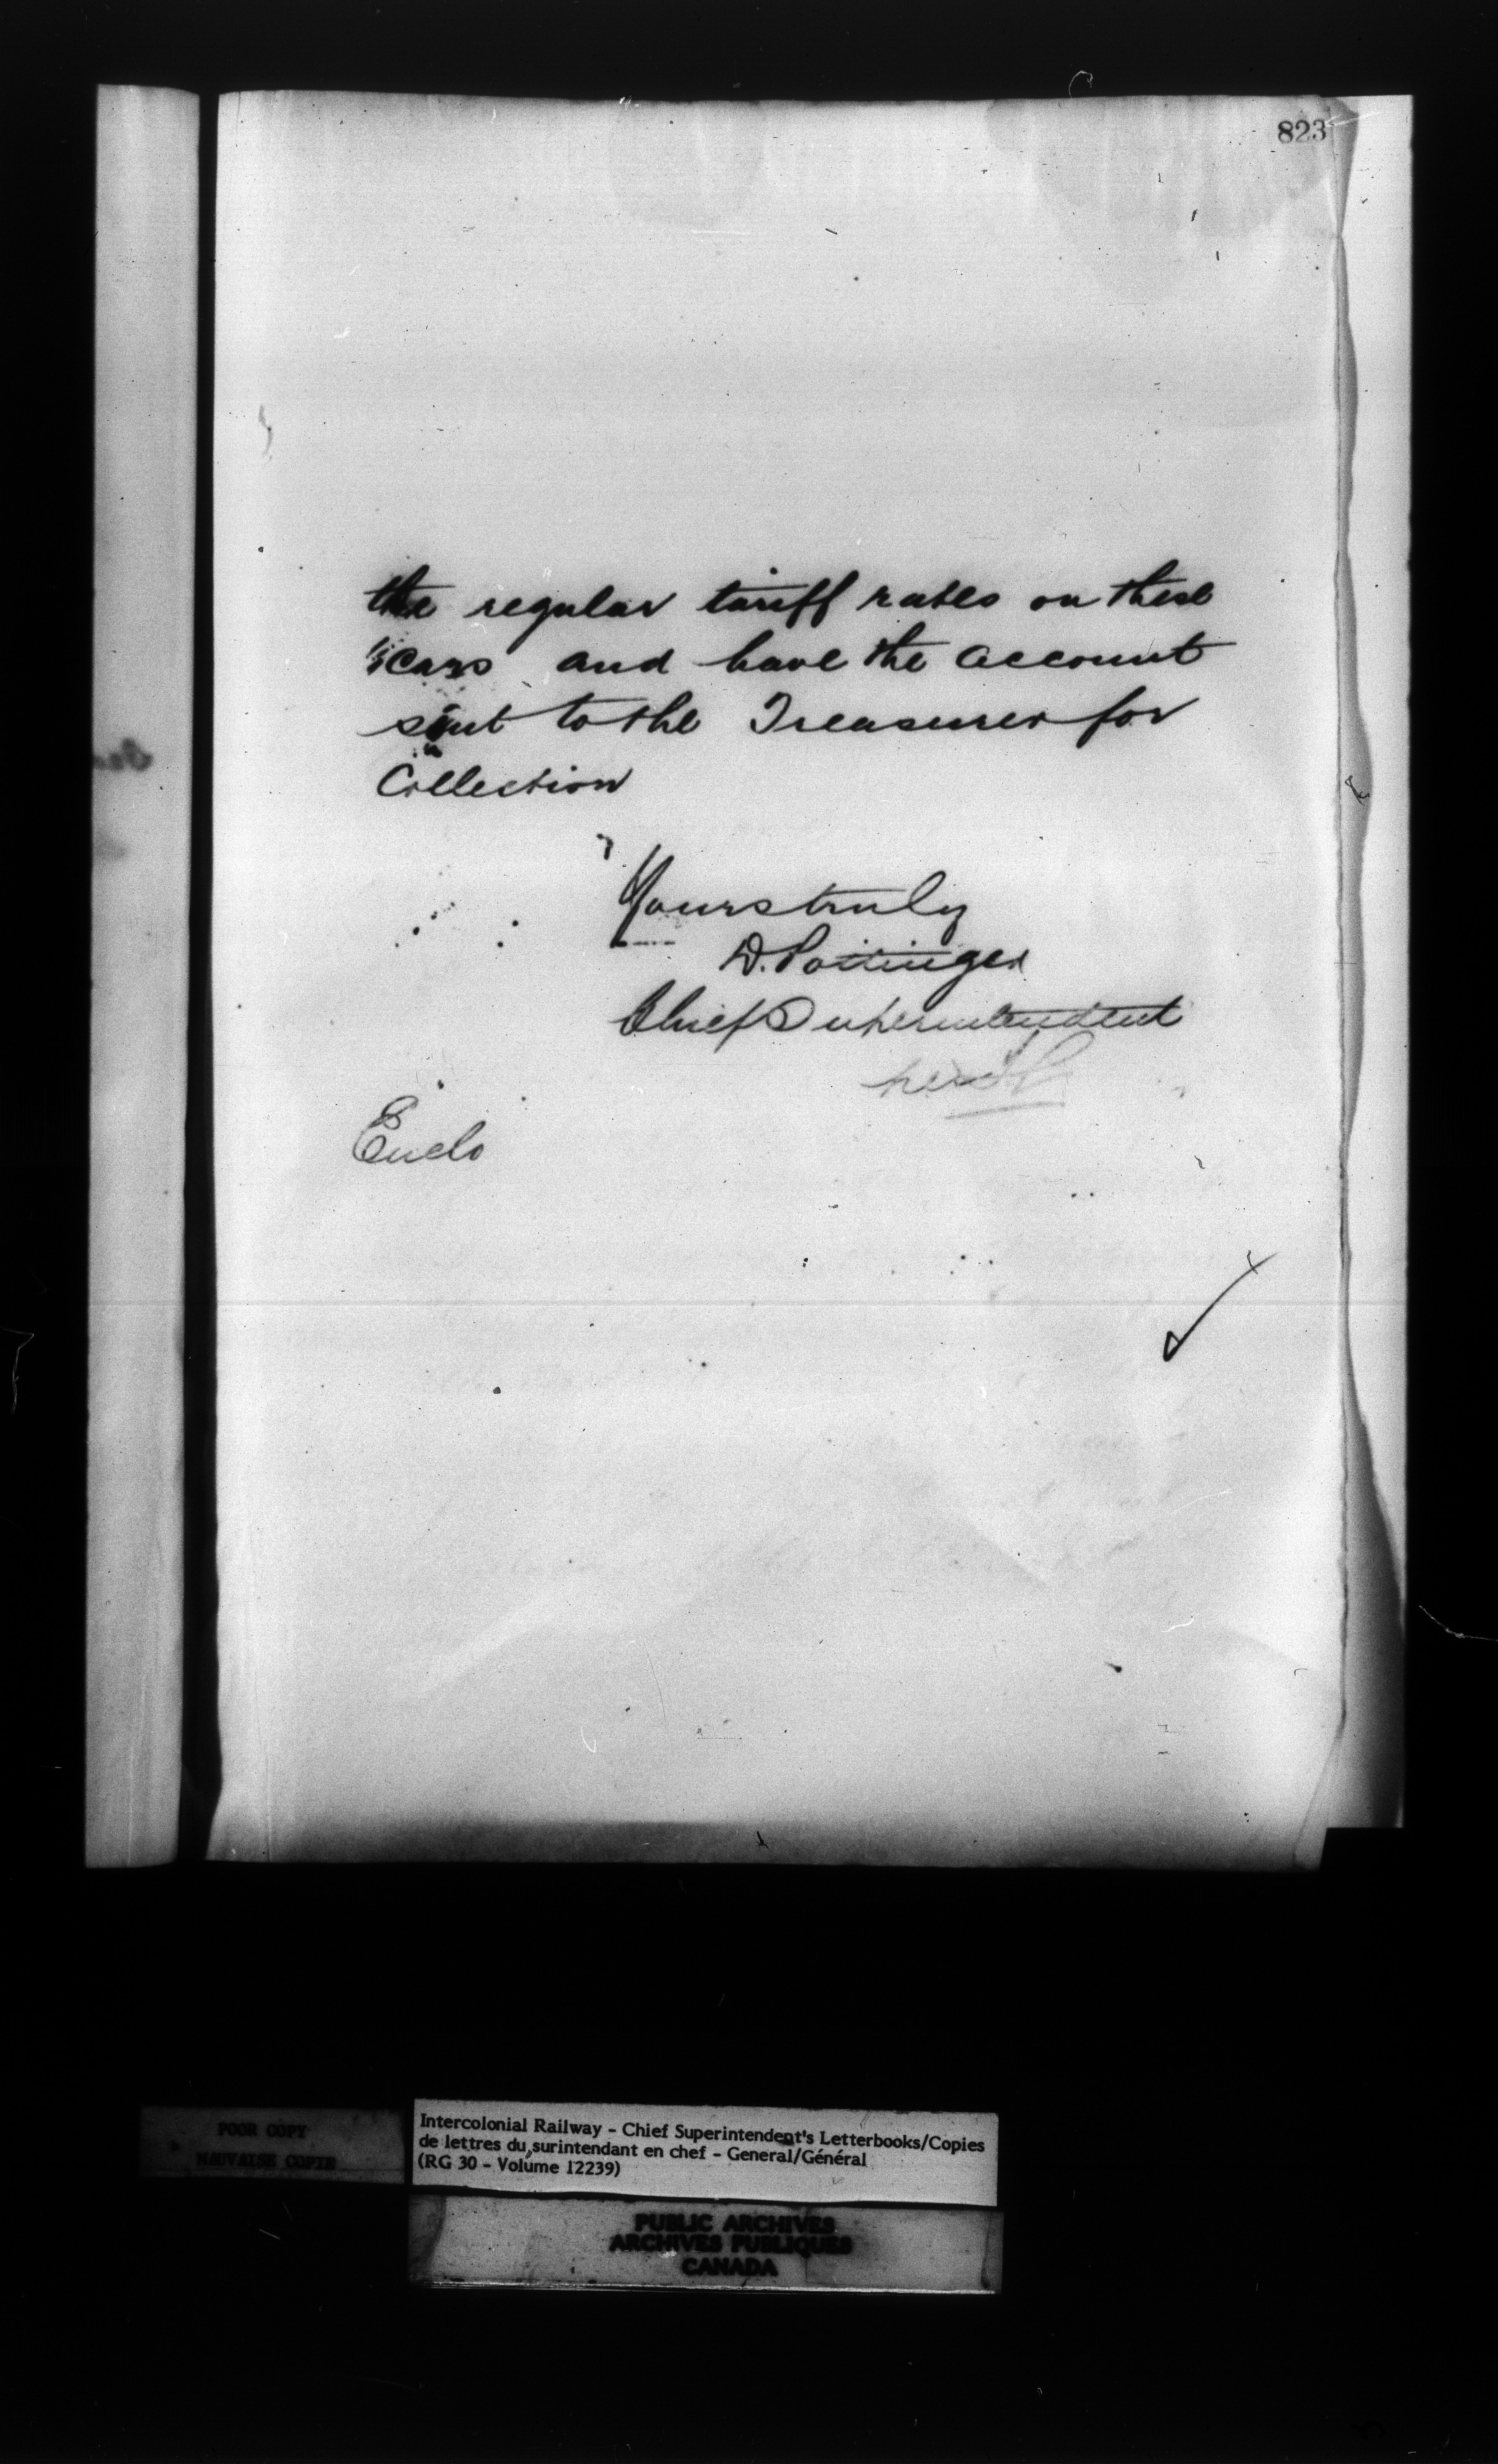 823
the regular tariff rates on these
cars and have the account
sent to the Treasurer for
Collection
Yours truly
D. Pottinger
Chief Superintendent
Enclo
POOR COPY
MAUVAISE COPIE
Intercolonial Railway - Chief Superintendent's Letterbooks/Copies
de lettres du surintendant en chef - General/Général
(RG 30 - Volume 12239)
PUBLIC ARCHIVES
ARCHIVES PUBLIQUES
CANADA